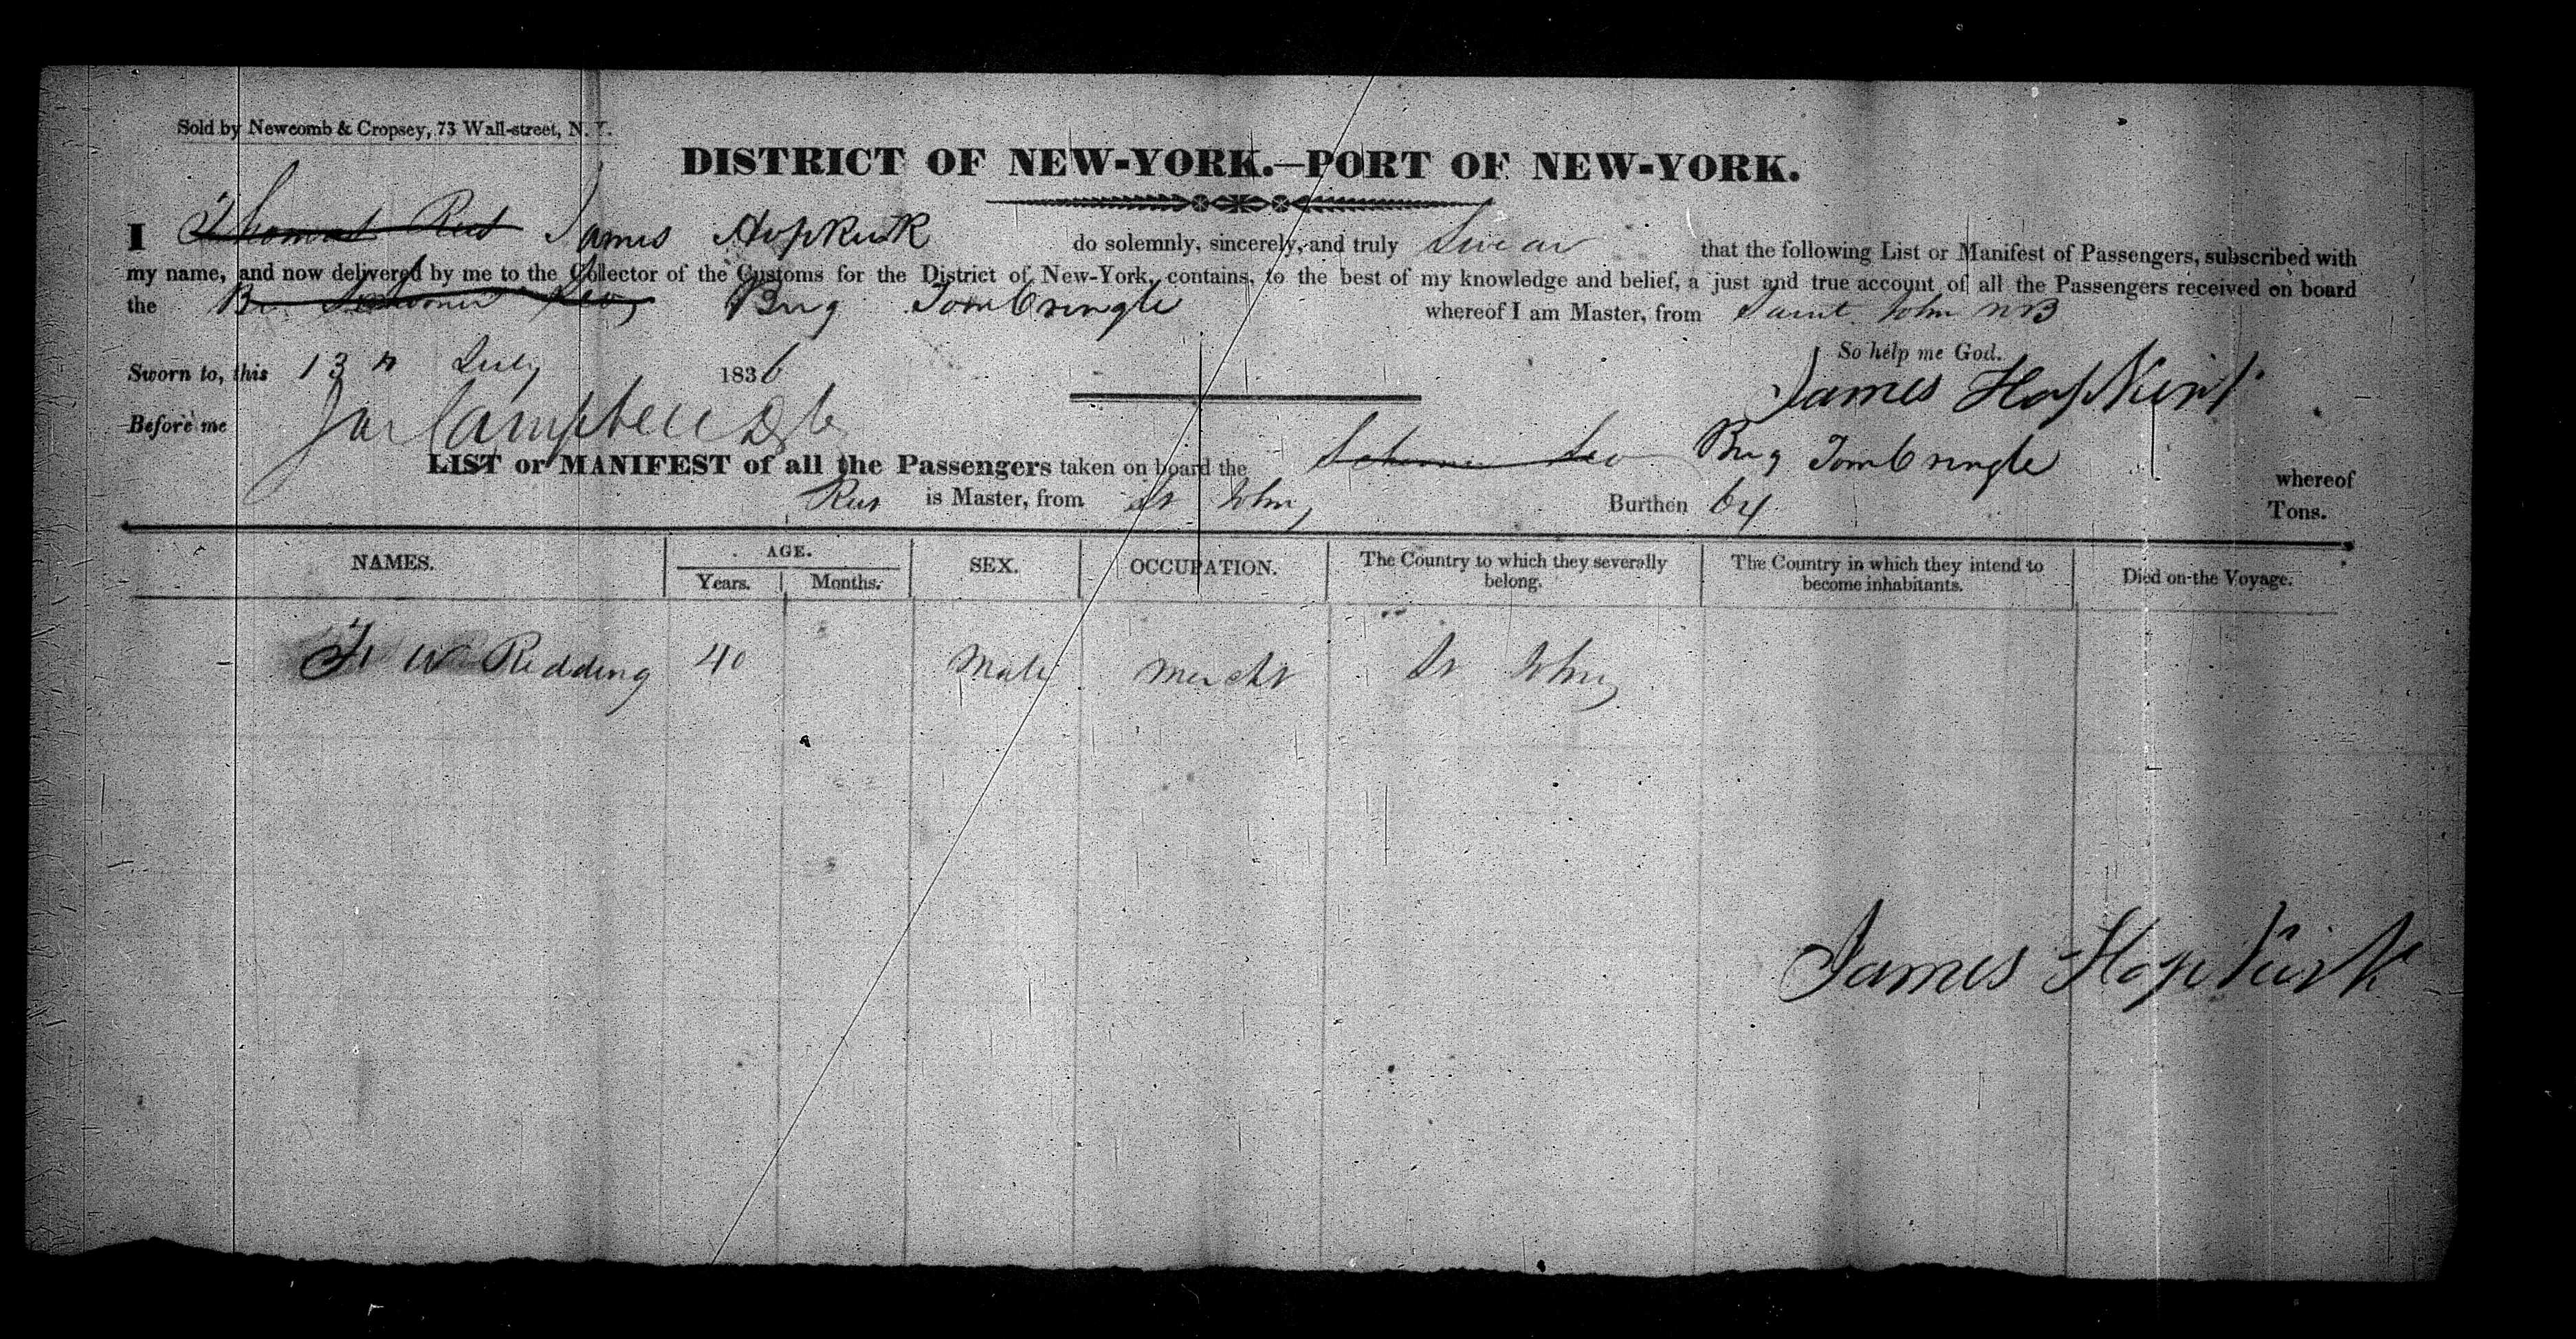 Sold by Newcomb & Cropsey, 73 Wall-street, N. Y.
DISTRICT OF NEW-YORK.—PORT OF NEW-YORK.
I Thomas James Hopkirk do solemnly, sincerely, and truly Swear that the following List or Manifest of Passengers, subscribed with
my name, and now delivered by me to the Collector of the Customs for the District of New-York, contains, to the best of my knowledge and belief, a just and true account of all the Passengers received on board
the Schooner Leo Brig Tom Cringle whereof I am Master, from Saint John NB
So help me God.
Sworn to, this 13th July 1836 James Hopkirk
Before me Campbell
LIST or MANIFEST of all the Passengers taken on board the Schooner Leo Brig Tom Cringle whereof
is Master, from St Johns Burthen 64 Tons.
NAMES. AGE. SEX. OCCUPATION. The Country to which they severally belong. The Country in which they intend to become inhabitants. Died on the Voyage.
Years. Months.
W Redding 40 Male Mercht St Johns
James Hopkirk